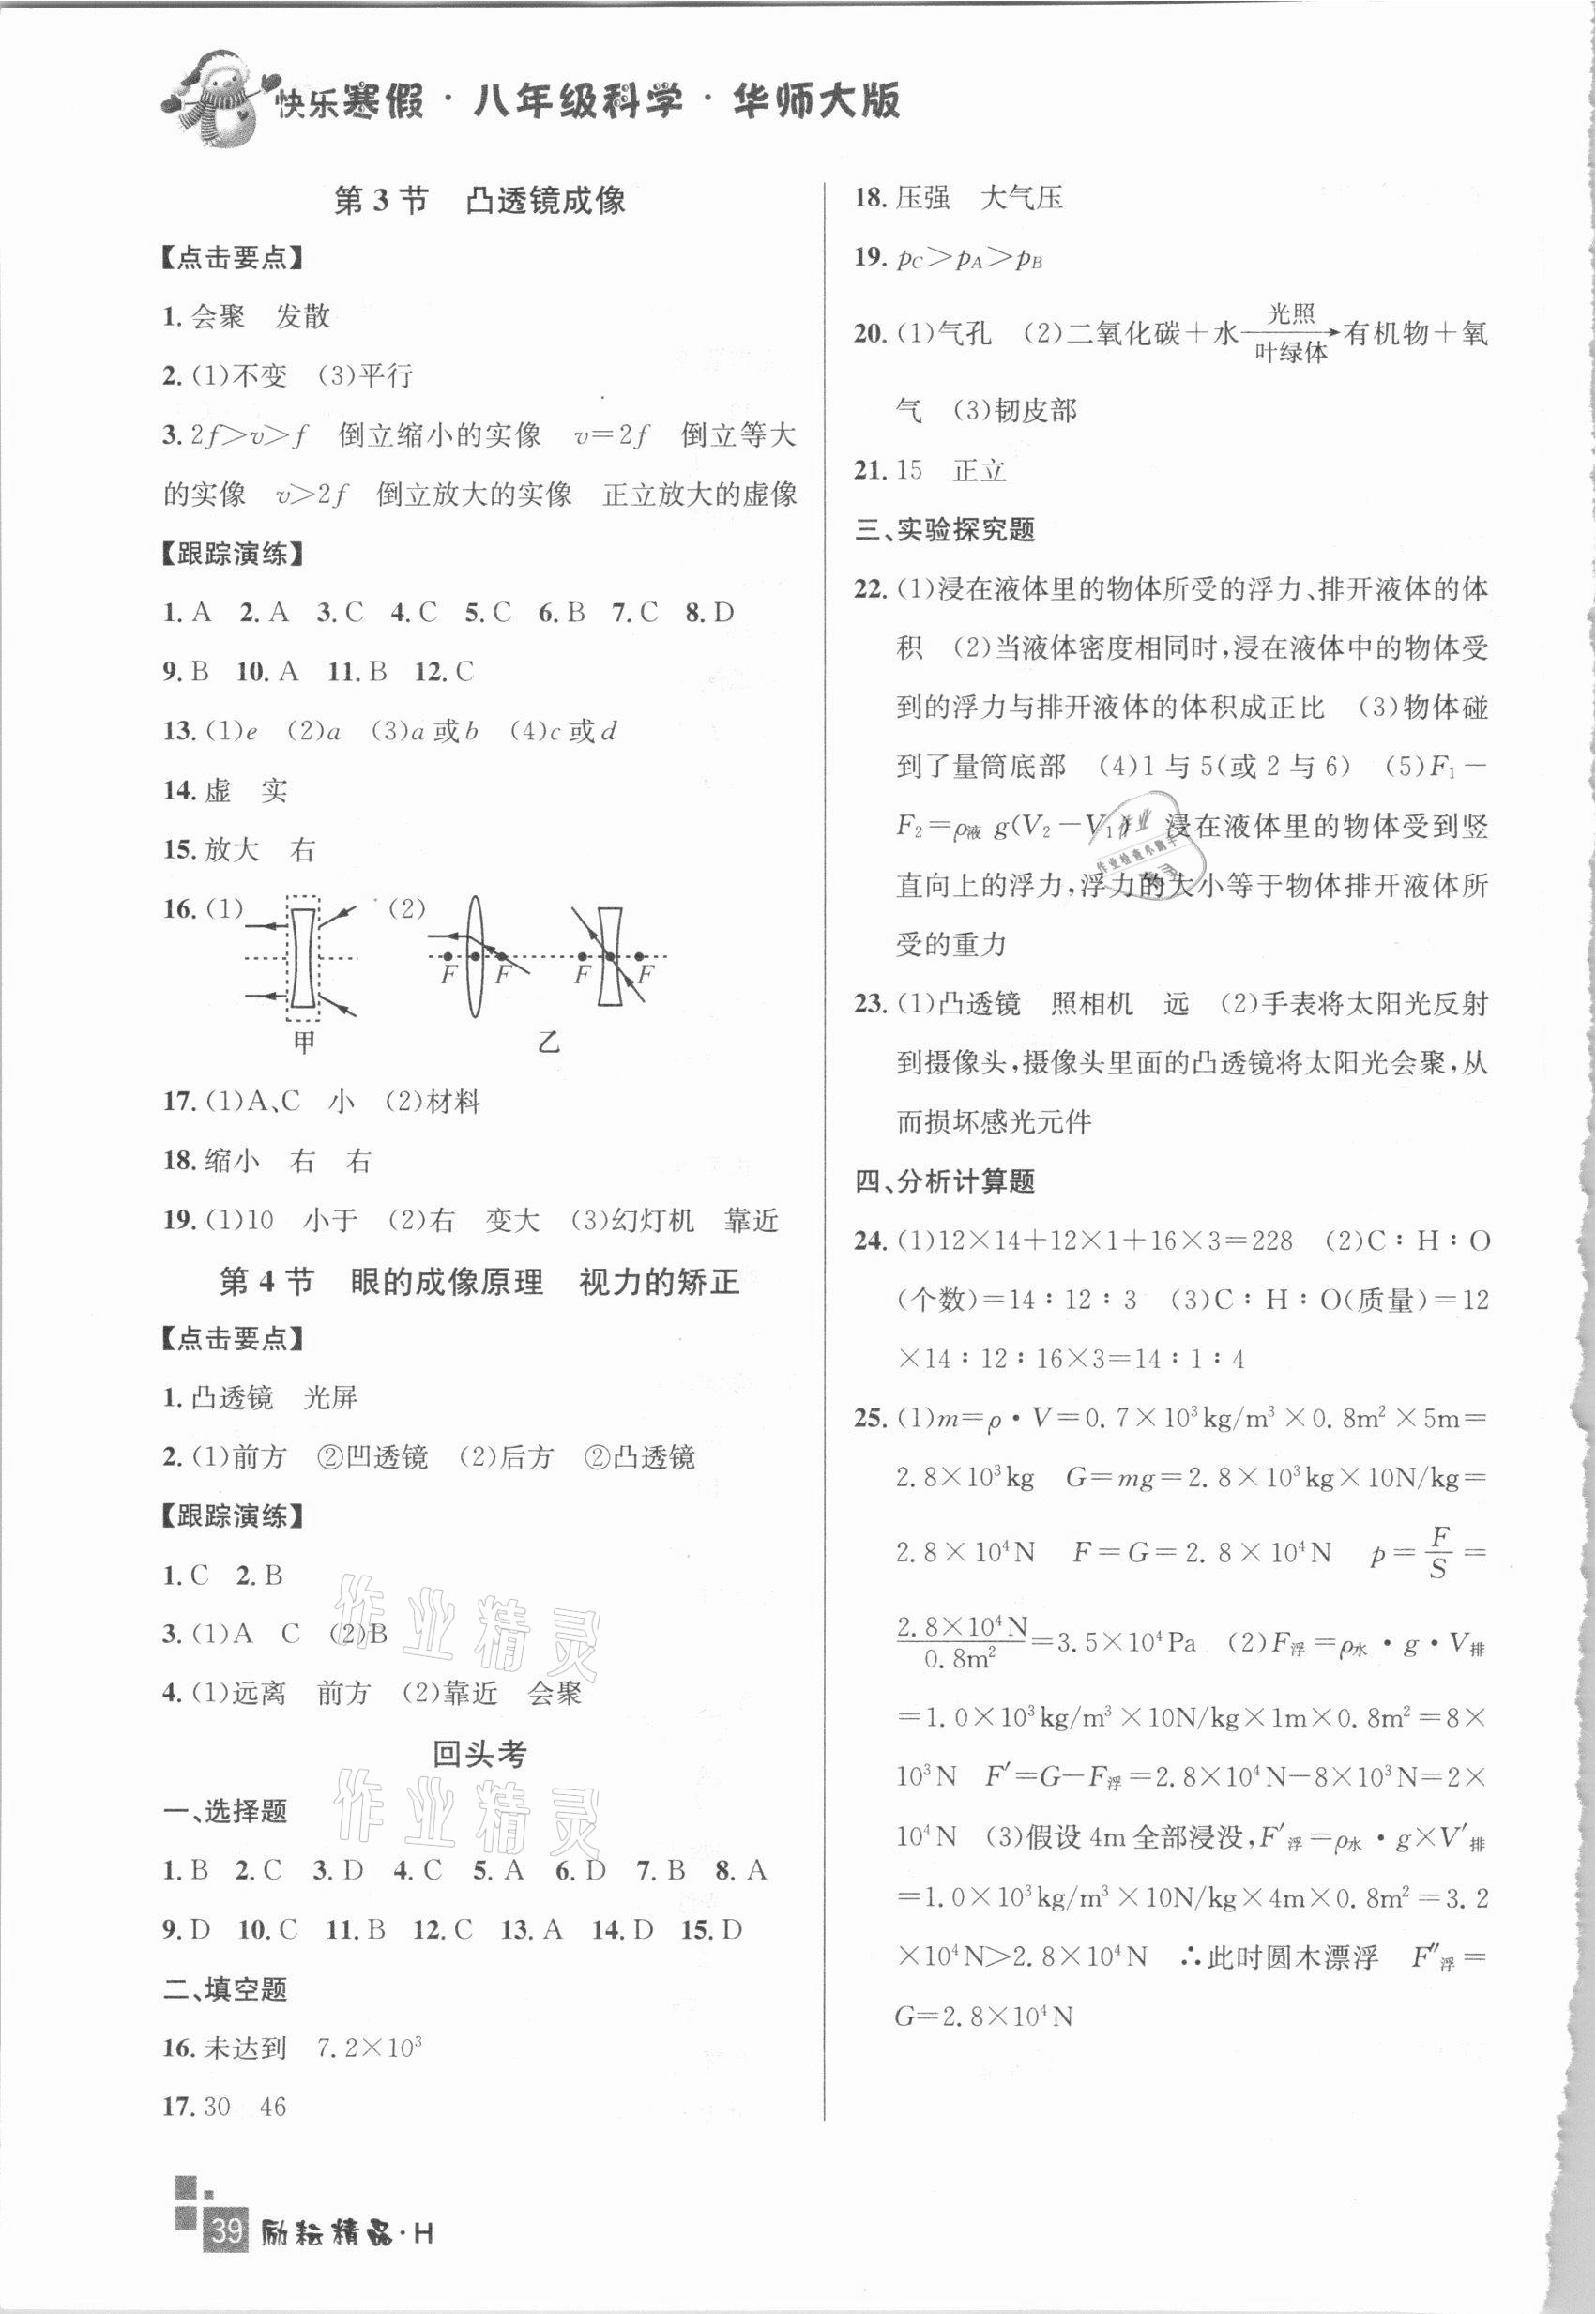 快乐寒假·八年级科学·华师大版
第3节　凸透镜成像
【点击要点】
1. 会聚　发散
2. (1)不变　(3)平行
3. 2f>v>f　倒立缩小的实像　v=2f　倒立等大
的实像　v>2f　倒立放大的实像　正立放大的虚像
【跟踪演练】
1. A　2. A　3. C　4. C　5. C　6. B　7. C　8. D
9. B　10. A　11. B　12. C
13. (1)e　(2)a　(3)a或b　(4)c或d
14. 虚　实
15. 放大　右
16. (1)　(2)
F　F　F　F
甲　乙
17. (1)A、C　小　(2)材料
18. 缩小　右　右
19. (1)10　小于　(2)右　变大　(3)幻灯机　靠近
第4节　眼的成像原理　视力的矫正
【点击要点】
1. 凸透镜　光屏
2. (1)前方　②凹透镜　(2)后方　②凸透镜
【跟踪演练】
1. C　2. B
3. (1)A　C　(2)B
4. (1)远离　前方　(2)靠近　会聚
回头考
一、选择题
1. B　2. C　3. D　4. C　5. A　6. D　7. B　8. A
9. D　10. C　11. B　12. C　13. A　14. D　15. D
二、填空题
16. 未达到　7.2×10³
17. 30　46
18. 压强　大气压
19. p_C>p_A>p_B
光照
20. (1)气孔　(2)二氧化碳+水→有机物+氧
叶绿体
气　(3)韧皮部
21. 15　正立
三、实验探究题
22. (1)浸在液体里的物体所受的浮力、排开液体的体
积　(2)当液体密度相同时,浸在液体中的物体受
到的浮力与排开液体的体积成正比　(3)物体碰
到了量筒底部　(4)1与5(或2与6)　(5)F₁−
F₂=ρ液 g(V₂−V₁)　浸在液体里的物体受到竖
直向上的浮力,浮力的大小等于物体排开液体所
受的重力
23. (1)凸透镜　照相机　远　(2)手表将太阳光反射
到摄像头,摄像头里面的凸透镜将太阳光会聚,从
而损坏感光元件
四、分析计算题
24. (1)12×14+12×1+16×3=228　(2)C∶H∶O
(个数)=14∶12∶3　(3)C∶H∶O(质量)=12
×14∶12∶16×3=14∶1∶4
25. (1)m=ρ·V=0.7×10³kg/m³×0.8m²×5m=
2.8×10³kg　G=mg=2.8×10³kg×10N/kg=
2.8×10⁴N　F=G=2.8×10⁴N　p=F/S=
2.8×10⁴N/0.8m²=3.5×10⁴Pa　(2)F浮=ρ水·g·V排
=1.0×10³kg/m³×10N/kg×1m×0.8m²=8×
10³N　F′=G−F浮=2.8×10⁴N−8×10³N=2×
10⁴N　(3)假设4m全部浸没,F′浮=ρ水·g×V′排
=1.0×10³kg/m³×10N/kg×4m×0.8m²=3.2
×10⁴N>2.8×10⁴N　∴此时圆木漂浮　F″浮=
G=2.8×10⁴N
作业精灵
作业精灵
作业检查小助手
39 励耘精品·H